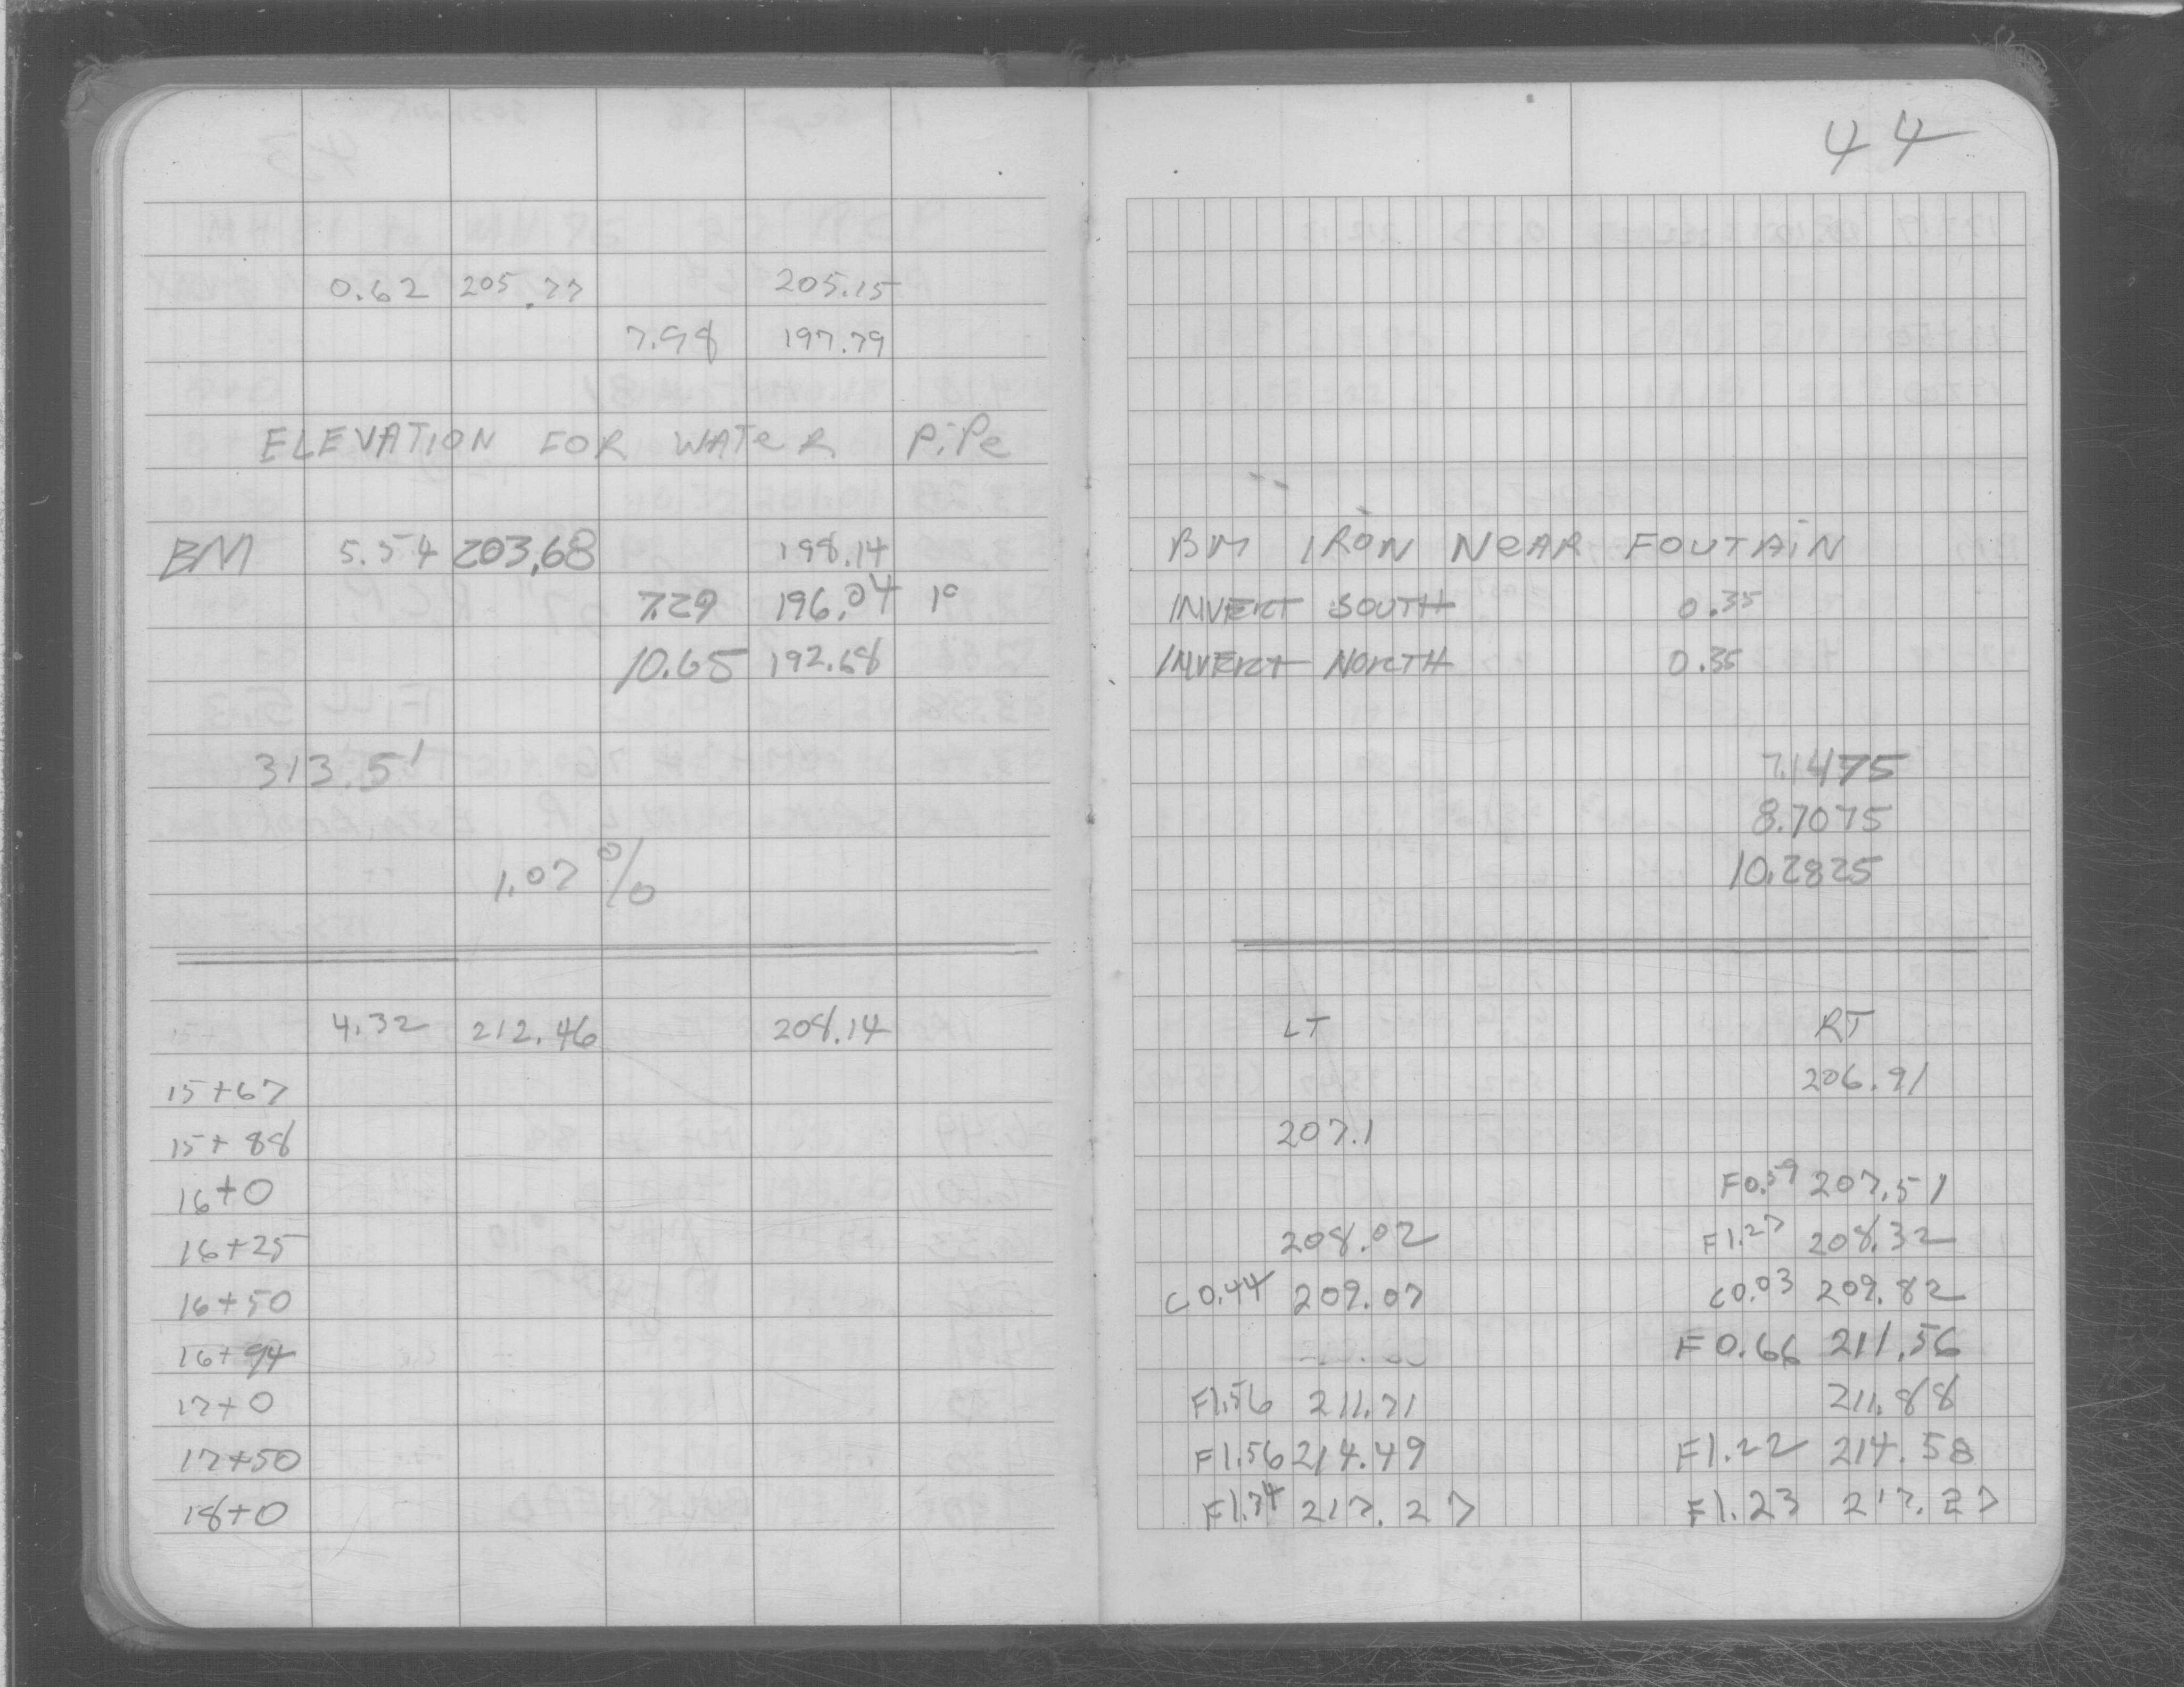 44
0.62 205.77 205.15
7.98 197.79
ELEVATION FOR WATeR PiPe
BM 5.54 203.68 198.14 BM IRON NeAR FOUTAiN
7.29 196.04 1° INVERT SOUTH 0.35
10.65 192.68 INVERT NORTH 0.35
313.5' 7.1475
8.7075
1.07 % 10.2825
15+ 4.32 212.46 208.14 LT RT
15+67 206.91
15+88 207.1
16+0 F0.59 207.51
16+25 208.02 F1.27 208.32
16+50 C0.44 209.07 C0.03 209.82
16+94 F0.66 211.56
17+0 F1.56 211.71 211.88
17+50 F1.56 214.49 F1.22 214.58
18+0 F1.34 217.27 F1.23 217.27